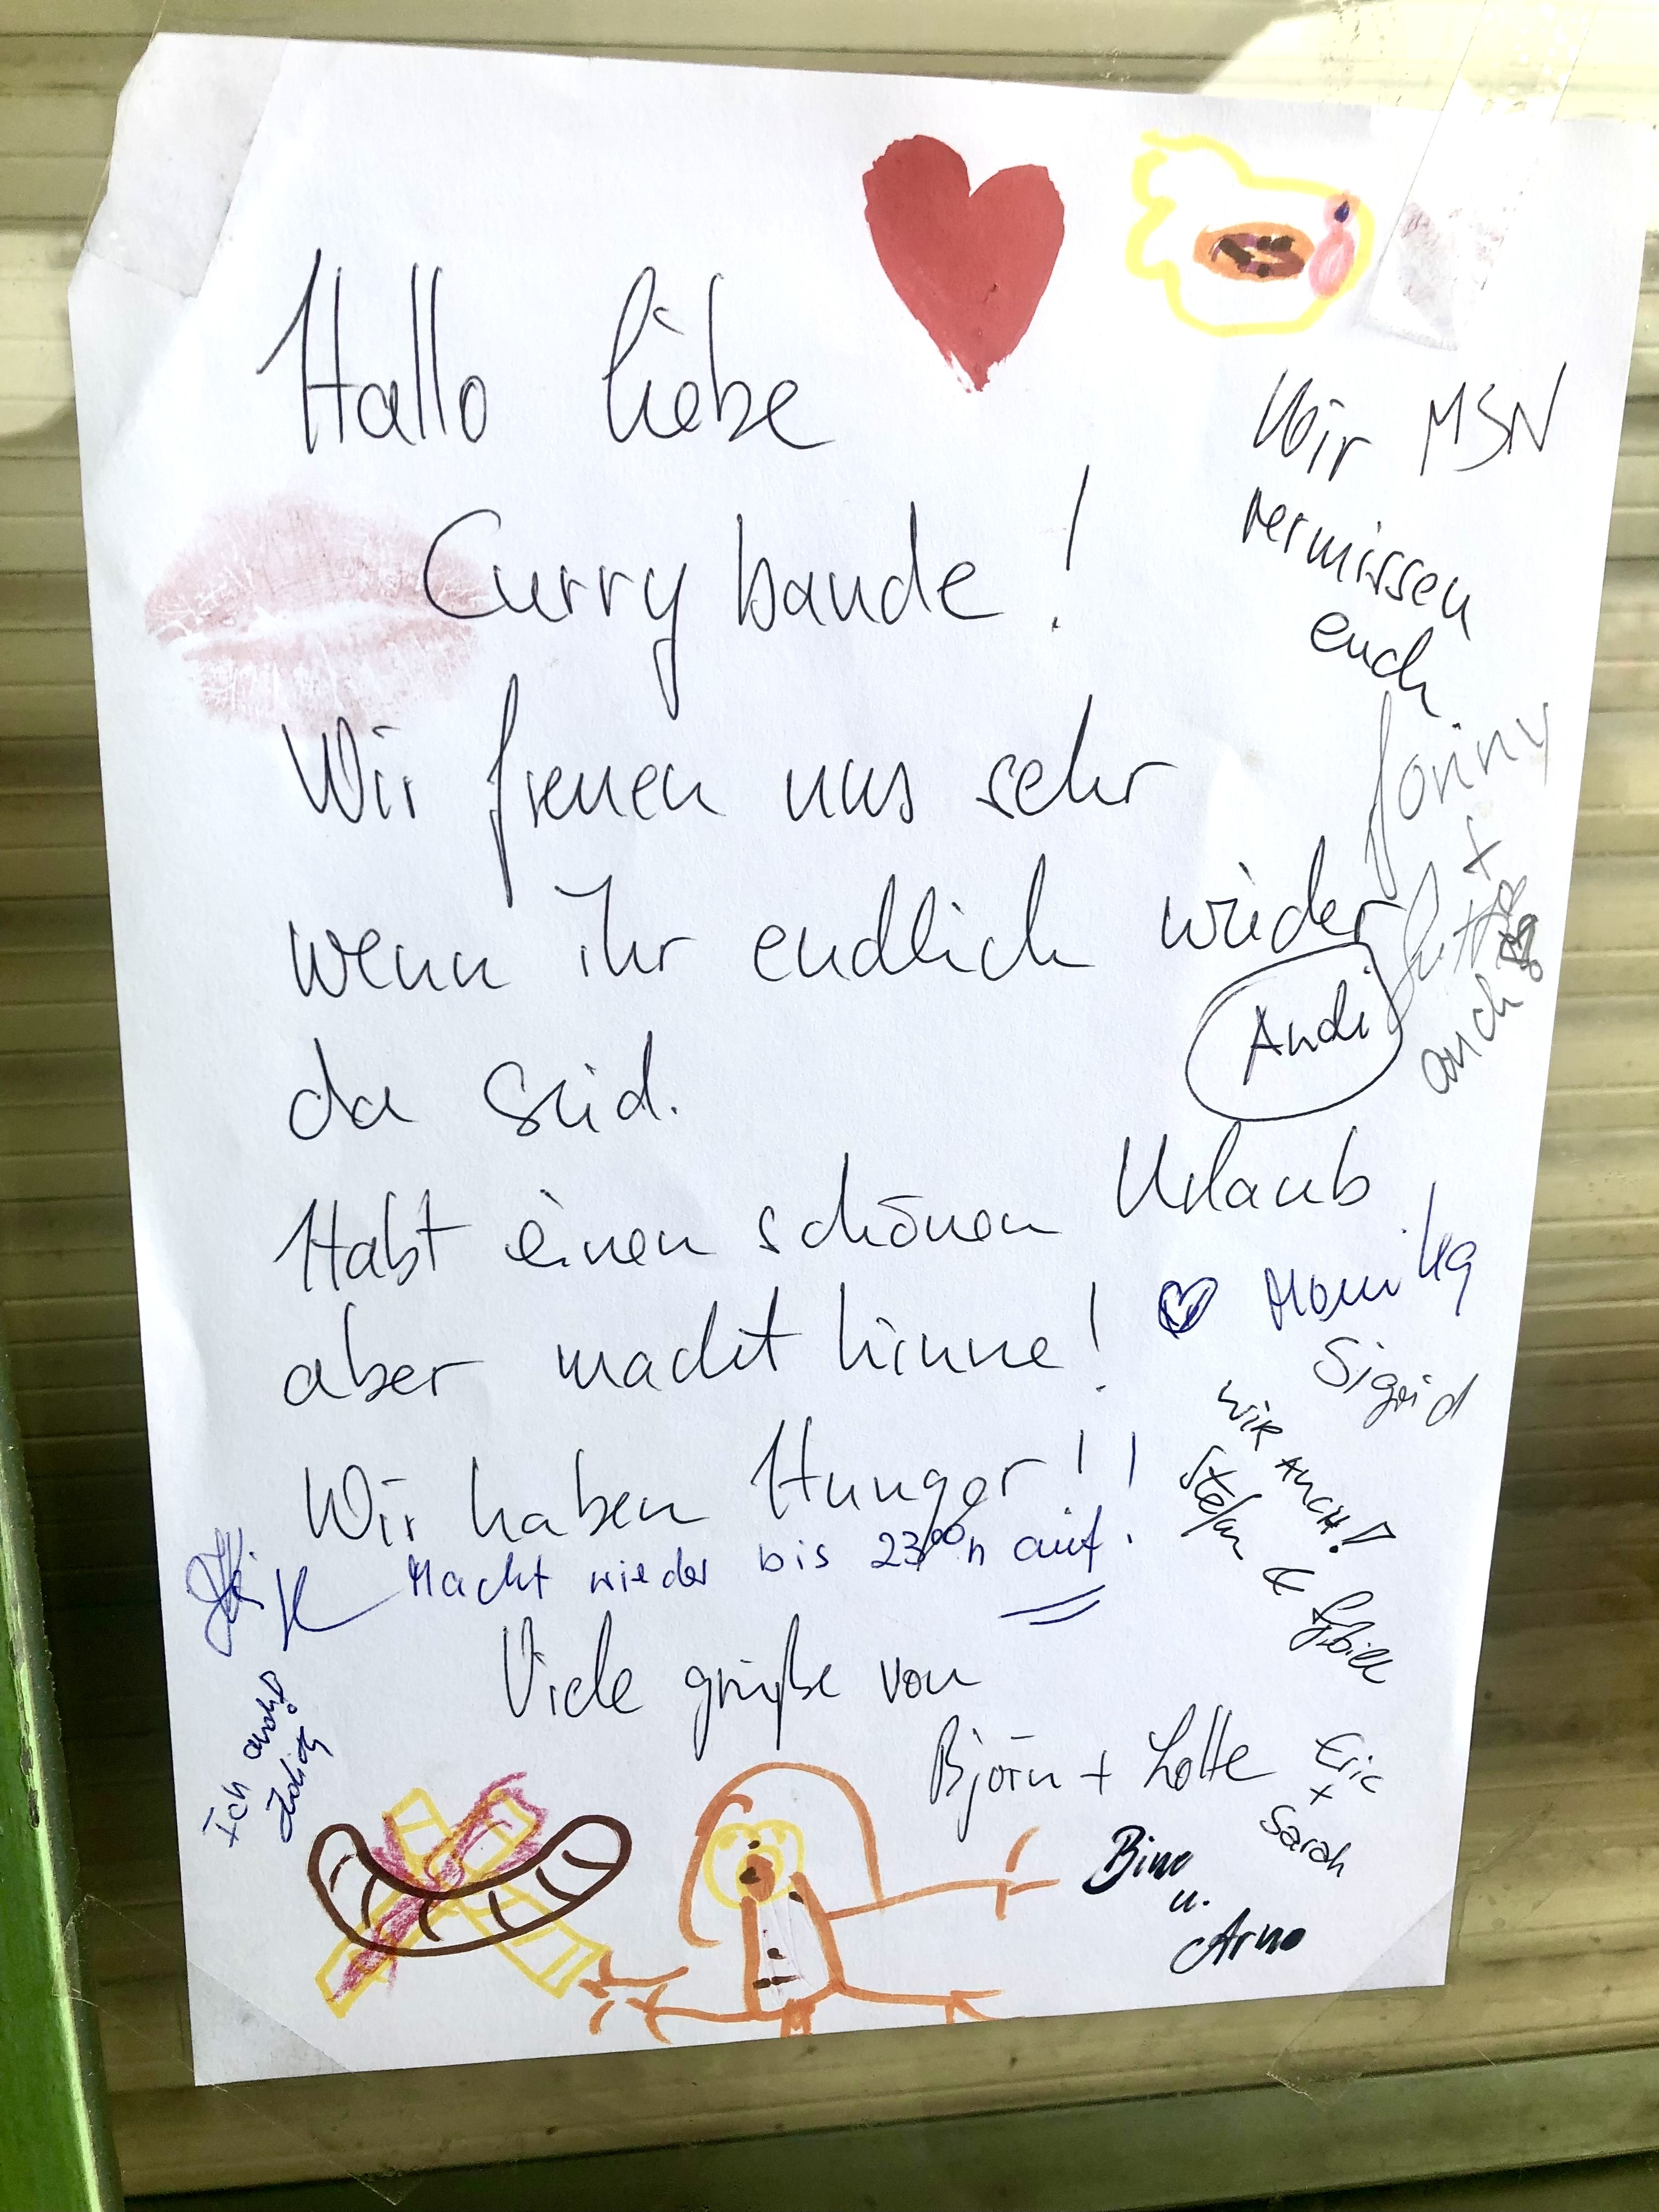 Hallo liebe
Currybande!
Wir freuen uns sehr
wenn ihr endlich wieder
da seid.
Habt einen schönen Urlaub
aber macht hinne!
Wir haben Hunger!!
Macht wieder bis 23⁰⁰h auf!
Viele grüße von
Björn + Lotte
Wir MSN
vermissen
euch
+
auch
Andi
Monika
Sigrid
WIR AUCH!
Stefan &
Eric
+
Sarah
Bine
u.
Arno
Ich auch!